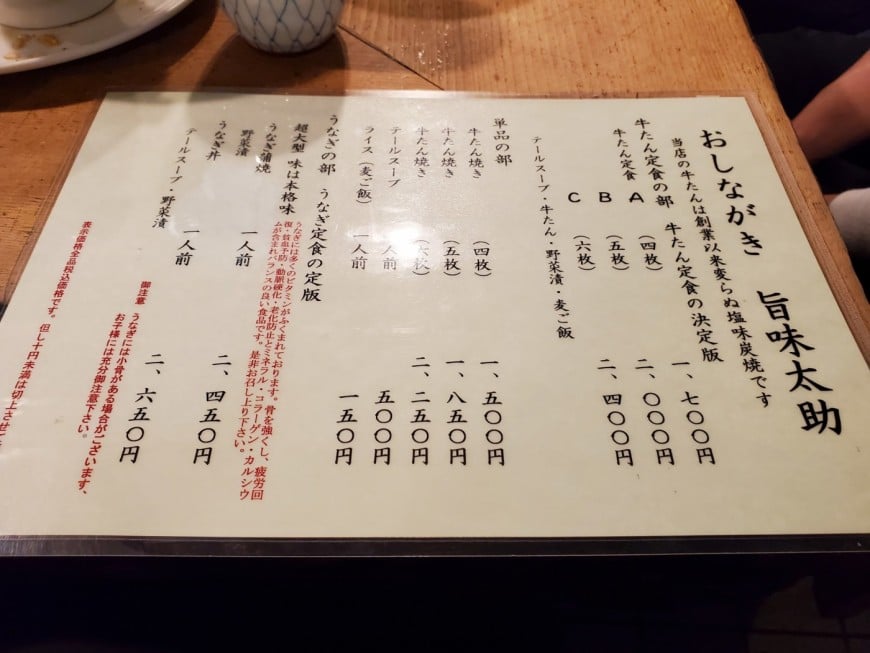 おしながき 旨味太助
当店の牛たんは創業以来変らぬ塩味炭焼です
牛たん定食の部 牛たん定食の決定版
牛たん定食 A (四枚) 一、七〇〇円
B (五枚) 二、〇〇〇円
C (六枚) 二、四〇〇円
テールスープ・牛たん・野菜漬・麦ご飯
単品の部
牛たん焼き (四枚) 一、五〇〇円
牛たん焼き (五枚) 一、八五〇円
牛たん焼き (六枚) 二、二五〇円
テールスープ 一人前 五〇〇円
ライス(麦ご飯) 一人前 一五〇円
うなぎの部 うなぎ定食の定版
超大型 味は本格味
うなぎには多くのビタミンがふくまれております。骨を強くし、疲労回
復・貧血予防・動脈硬化・老化防止とミネラル・コラーゲン・カルシウ
ムが含まれバランスの良い食品です。是非お召し上り下さい。
うなぎ蒲焼
野菜漬 一人前 二、四五〇円
うなぎ丼
テールスープ・野菜漬 一人前 二、六五〇円
御注意 うなぎには小骨がある場合がございます、
お子様には充分御注意下さい。
表示価格全品税込価格です。但し十円未満は切上させ